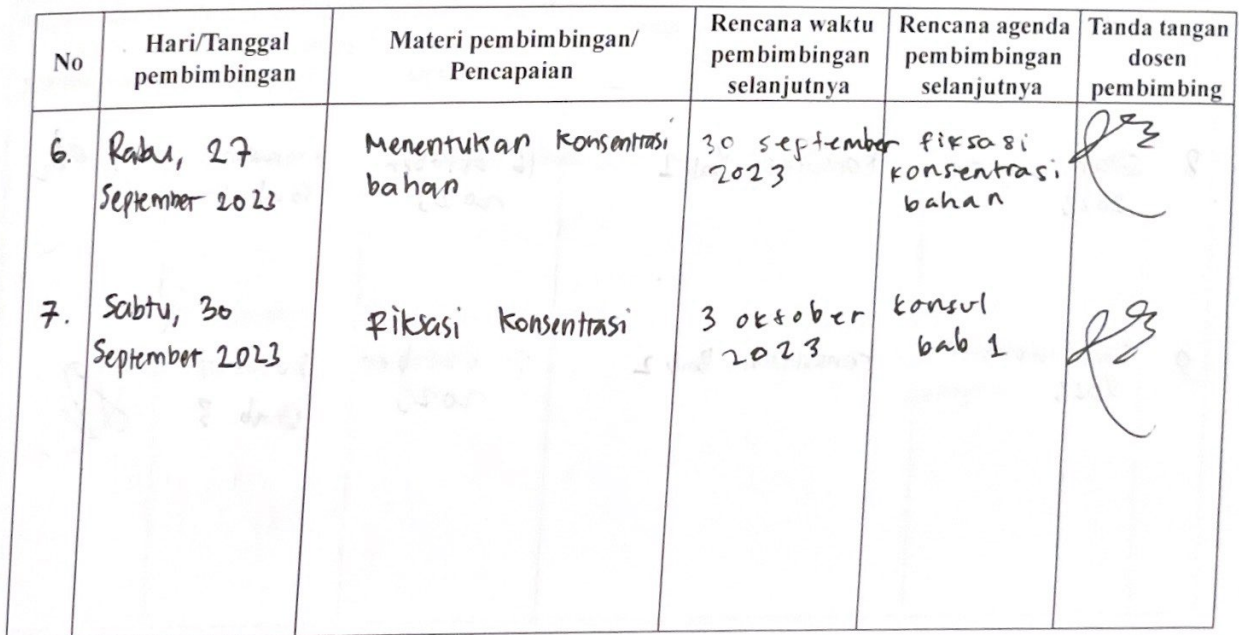 No
Hari/Tanggal
pembimbingan
Materi pembimbingan/
Pencapaian
Rencana waktu
pembimbingan
selanjutnya
Rencana agenda
pembimbingan
selanjutnya
Tanda tangan
dosen
pembimbing
6.
Rabu, 27
September 2023
Menentukan Konsentrasi
bahan
30 september
2023
fiksasi
konsentrasi
bahan
7.
Sabtu, 30
September 2023
Fiksasi Konsentrasi
3 oktober
2023
konsul
bab 1